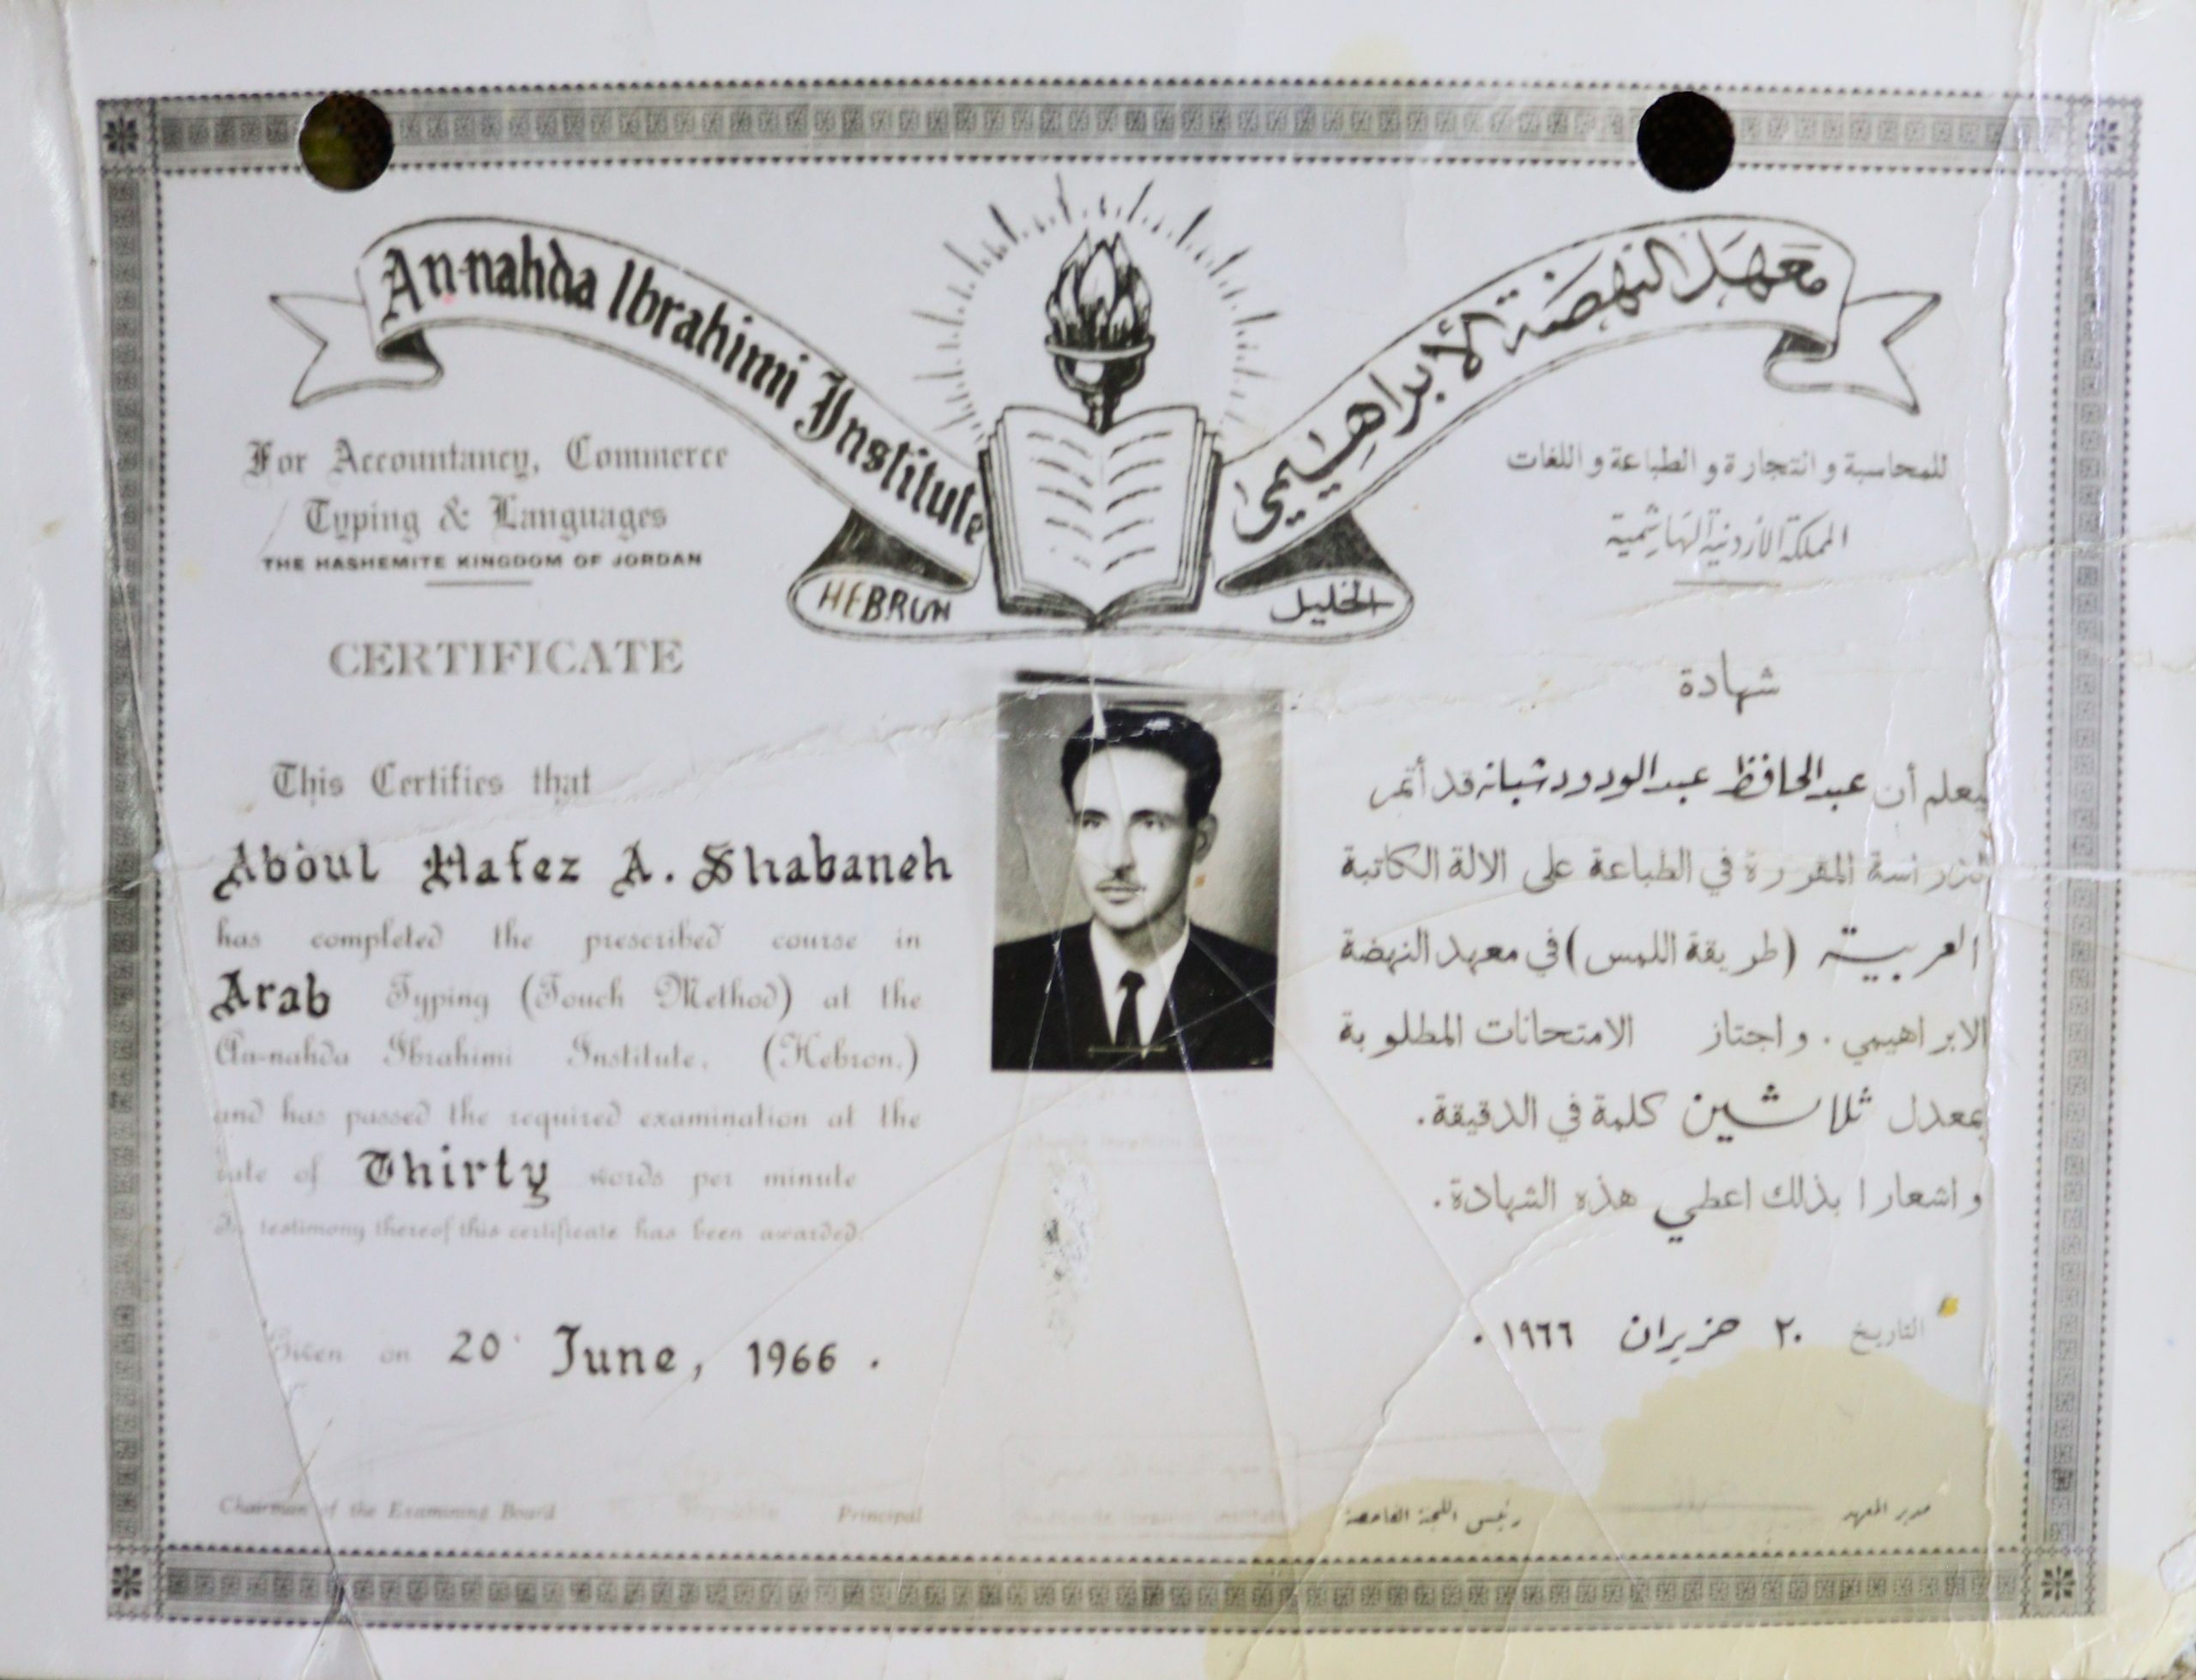 An-nahda Ibrahimi Institute
معهد النهضة الأبراهيمي
For Accountancy, Commerce
Typing & Languages
THE HASHEMITE KINGDOM OF JORDAN
للمحاسبة والتجارة والطباعة واللغات
المملكة الأردنية الهاشمية
HEBRON
الخليل
CERTIFICATE
This Certifies that
Abdul Hafez A. Shabaneh
has completed the prescribed course in
Arab Typing (Touch Method) at the
An-nahda Ibrahimi Institute, (Hebron.)
and has passed the required examination at the
rate of Thirty words per minute
In testimony thereof this certificate has been awarded.
Given on 20 June, 1966.
Chairman of the Examining Board
Principal
شهادة
يعلم أن عبد الحافظ عبد الودود شبانه قد أتم
الدراسة المقررة في الطباعة على الالة الكاتبة
العربية (طريقة اللمس) في معهد النهضة
الابراهيمي. واجتاز الامتحانات المطلوبة
بمعدل ثلاثين كلمة في الدقيقة.
واشعارا بذلك اعطي هذه الشهادة.
التاريخ ٢٠ حزيران ١٩٦٦.
رئيس اللجنة الفاحصة
مدير المعهد